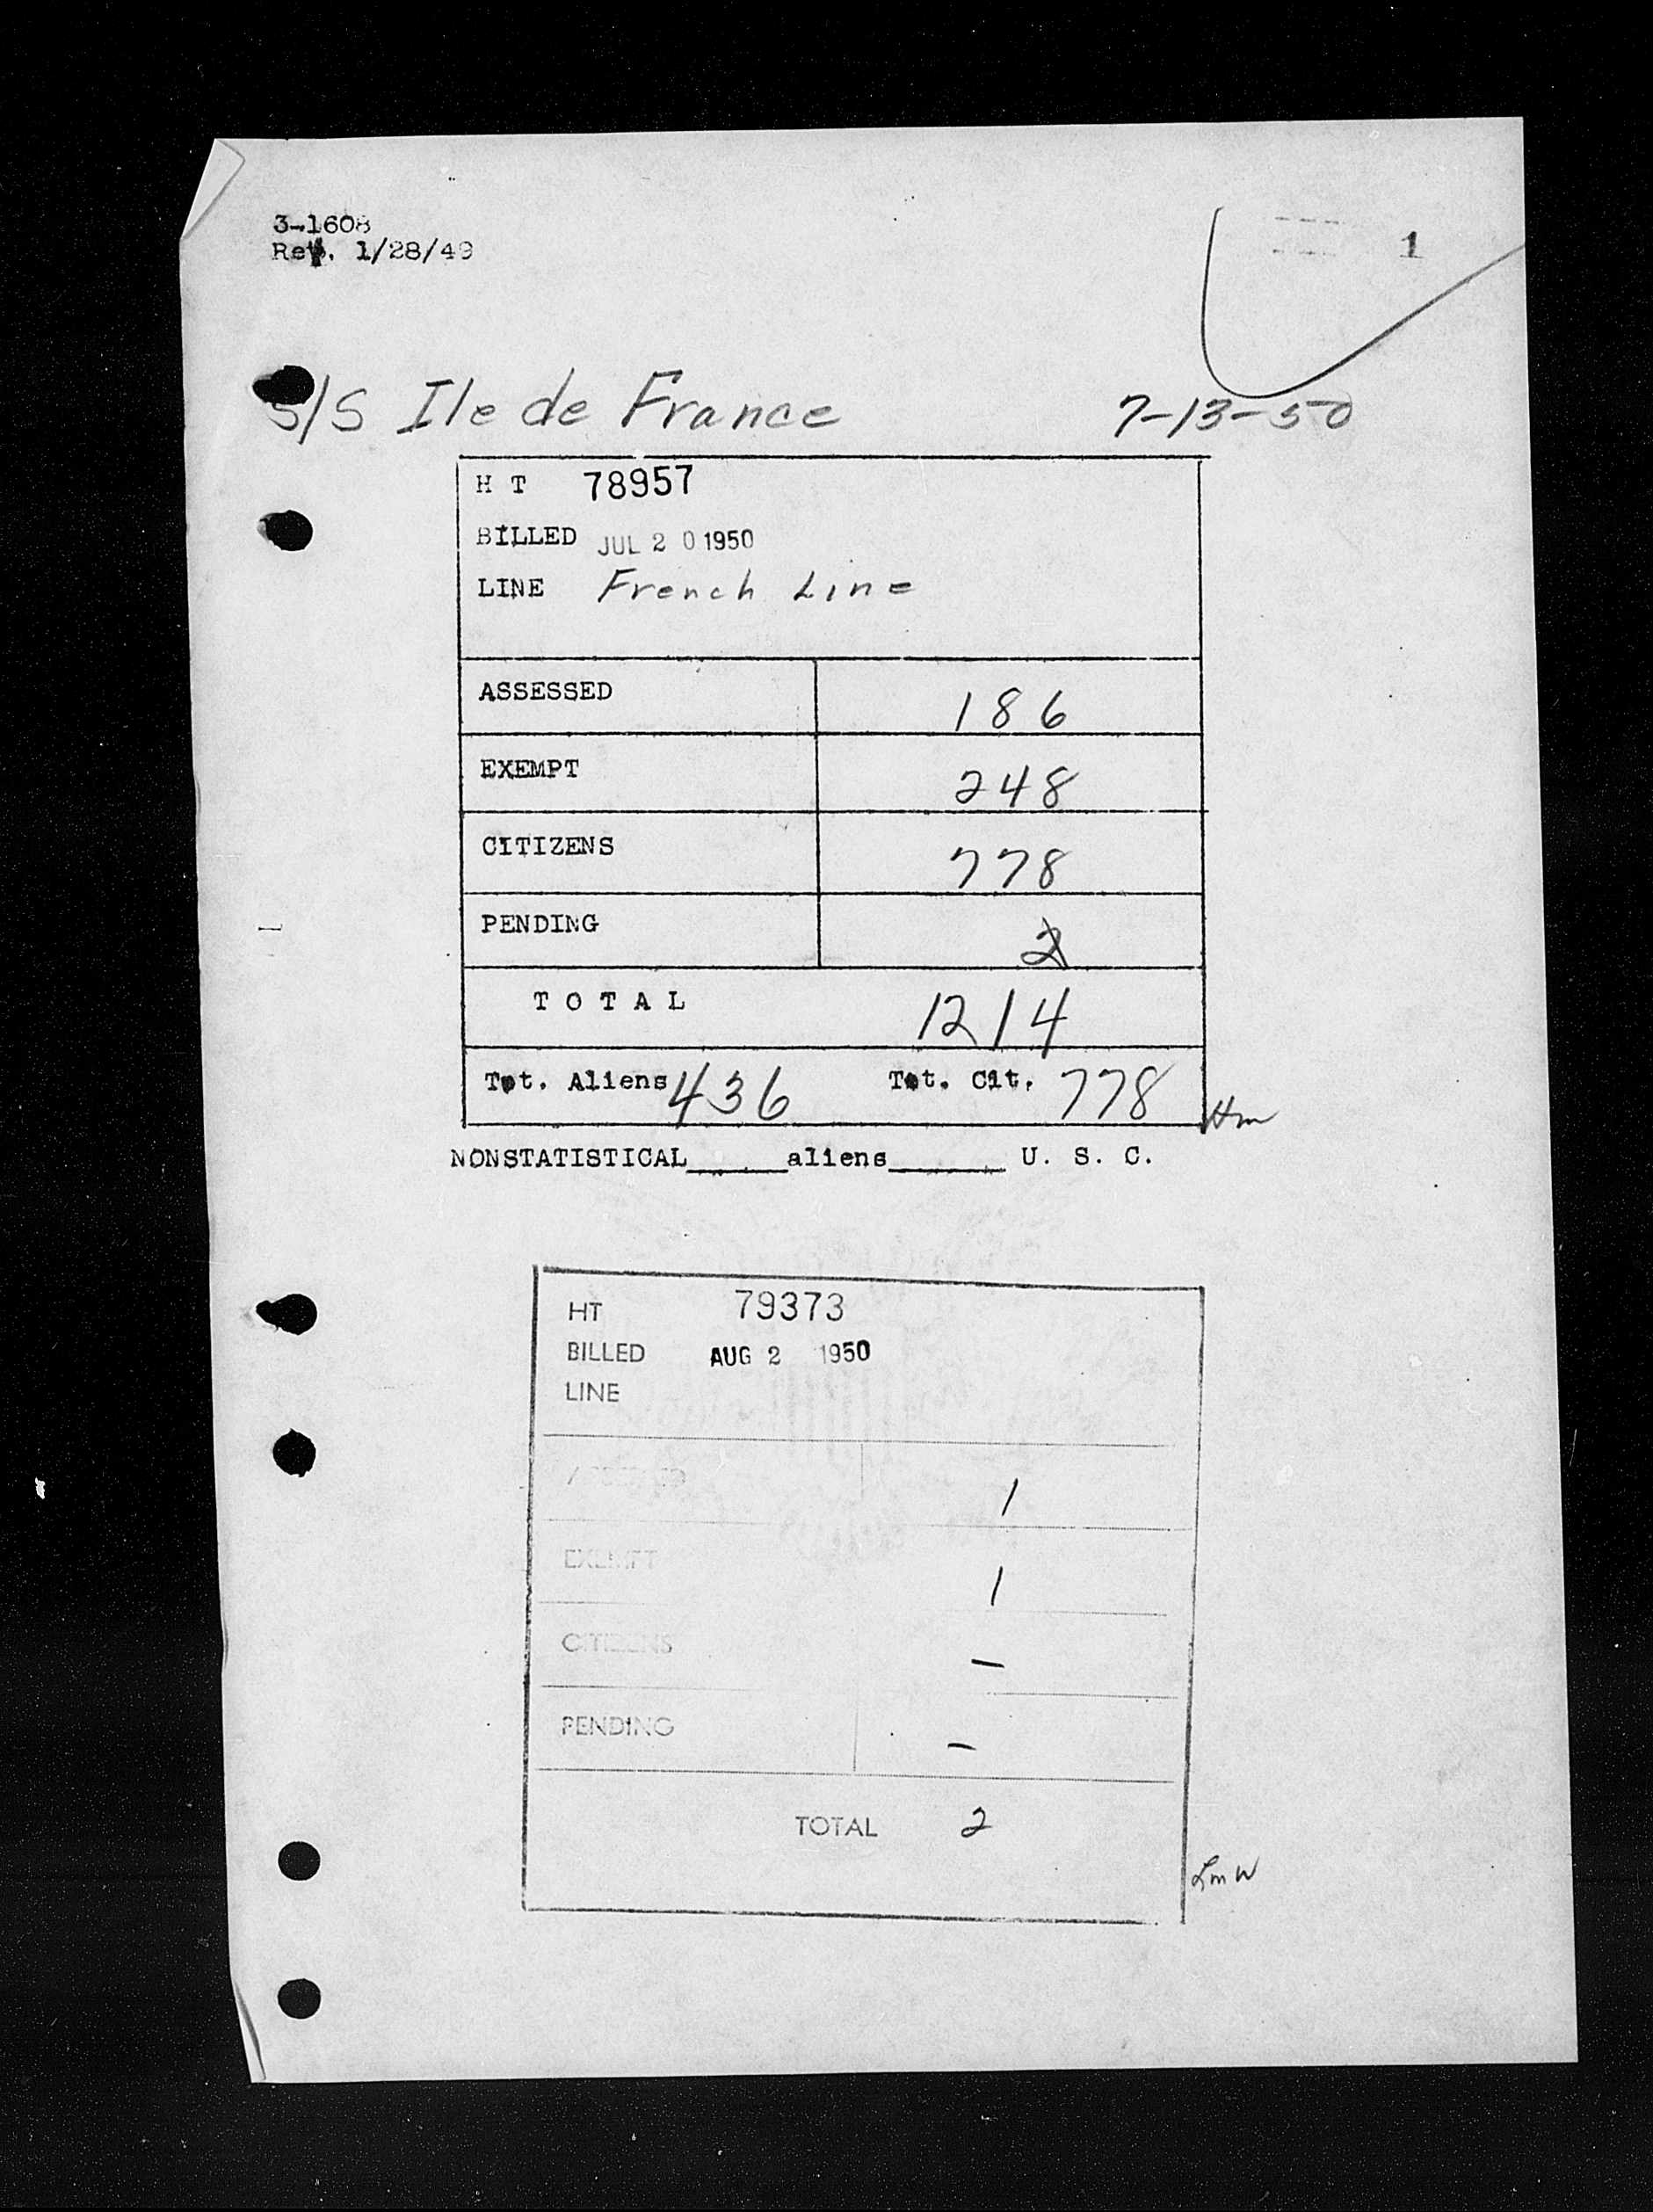 3-1608
Rev. 1/28/49
1
S/S Ile de France 7-13-50
H T 78957
BILLED JUL 2 0 1950
LINE French Line
ASSESSED 186
EXEMPT 248
CITIZENS 778
PENDING 2
T O T A L 1214
Tot. Aliens 436 Tot. Cit. 778
Hm
NONSTATISTICAL_____aliens______ U. S. C.
HT 79373
BILLED AUG 2 1950
LINE
ASSESSED 1
EXEMPT 1
CITIZENS –
PENDING –
TOTAL 2
LmW